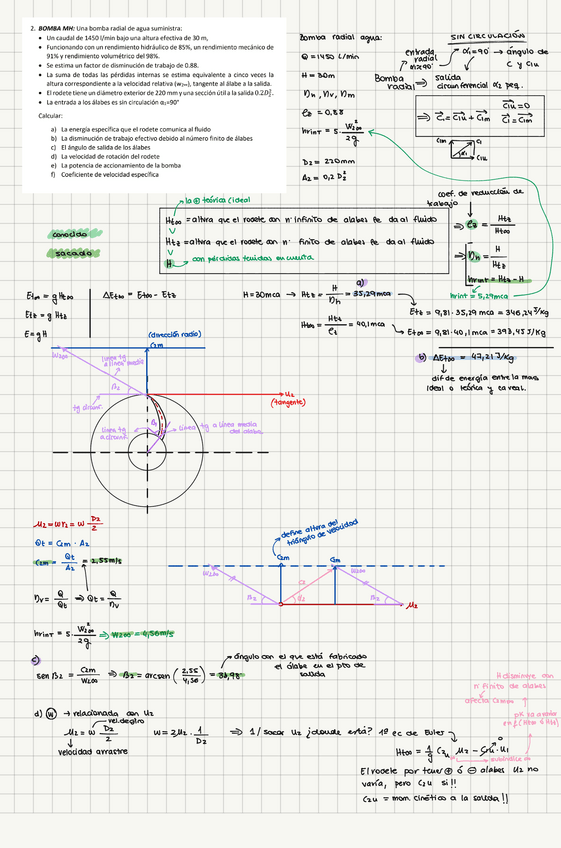 2. BOMBA MH: Una bomba radial de agua suministra:
• Un caudal de 1450 l/min bajo una altura efectiva de 30 m,
• Funcionando con un rendimiento hidráulico de 85%, un rendimiento mecánico de 91% y rendimiento volumétrico del 98%.
• Se estima un factor de disminución de trabajo de 0.88.
• La suma de todas las pérdidas internas se estima equivalente a cinco veces la altura correspondiente a la velocidad relativa (w₂∞), tangente al álabe a la salida.
• El rodete tiene un diámetro exterior de 220 mm y una sección útil a la salida 0.2D₂².
• La entrada a los álabes es sin circulación α₁=90°
Calcular:
a) La energía específica que el rodete comunica al fluido
b) La disminución de trabajo efectivo debido al número finito de álabes
c) El ángulo de salida de los álabes
d) La velocidad de rotación del rodete
e) La potencia de accionamiento de la bomba
f) Coeficiente de velocidad específica
Bomba radial agua:
Q = 1450 L/min
H = 30m
ηh, ηv, ηm
ez = 0,88
hrint = 5· W²₂∞/2g
D₂ = 220mm
A₂ = 0,2 D₂²
SIN CIRCULACIÓN
entrada radial α₁=90°
α₁=90° → ángulo de C y C1u
Bomba radial → salida circunferencial α₂ peq.
⇒ C₁ = C1u + C1m
C1u = 0
C₁ = C1m
C1m C₁
α₁ C1u
la ⊕ teórica (ideal
conocido
sacado
Ht∞ = altura que el rodete con nº infinito de alabes le da al fluido
V
Htz = altura que el rodete con nº finito de alabes le da al fluido
V
H → con pérdidas tenidas en cuenta
coef. de reducción de trabajo
⇒ ez = Htz/Ht∞
ηh = H/Htz
hrint = Htz - H
hrint = 5,29mca
Et∞ = g Ht∞
Etz = g Htz
E = g H
ΔEt∞ = Et∞ - Etz
a)
H = 30mca → Htz = H/ηh = 35,29mca
Ht∞ = Htz/ez = 40,1mca
Etz = 9,81·35,29 mca = 346,24 J/Kg
Et∞ = 9,81·40,1mca = 393,45 J/Kg
b) ΔEt∞ = 47,21 J/Kg
dif de energía entre la mas ideal o teórica y la real.
(dirección radio)
W₂∞ C₂m
linea tg a linea media
β₂
tg circunf.
U₂ (tangente)
linea tg a circunf.
β₂
linea tg a linea media del alabe.
U₂ = wr₂ = w D₂/2
Qt = C₂m · A₂
C₂m = Qt/A₂ = 2,55m/s
ηv = Q/Qt ⇒ Qt = Q/ηv
hrint = 5· W²₂∞/2g ⇒ W₂∞ = 4,56m/s
define altura del triángulo de velocidad
W₂∞ C₂m C₂m W₂∞
C₂
β₂ α₂ β₂ U₂
c)
sen β₂ = C₂m/W₂∞ ⇒ β₂ = arcsen (2,55/4,56) = 33,98°
ángulo con el que está fabricado el álabe en el pto de salida
d) ⓦ → relacionada con U₂
vel de giro
U₂ = w D₂/2
velocidad arrastre
w = 2U₂ · 1/D₂
⇒ 1/ sacar U₂ ¿donde está? 1ª ec de Euler
Ht∞ = 1/g C₂u U₂ - C1u · U₁
0
H disminuye con nº finito de alabes
subíndice ∞
El rodete por tener ⊕ ó ⊖ alabes U₂ no varía, pero C₂u si!!
C₂u = mom cinético a la salida!!